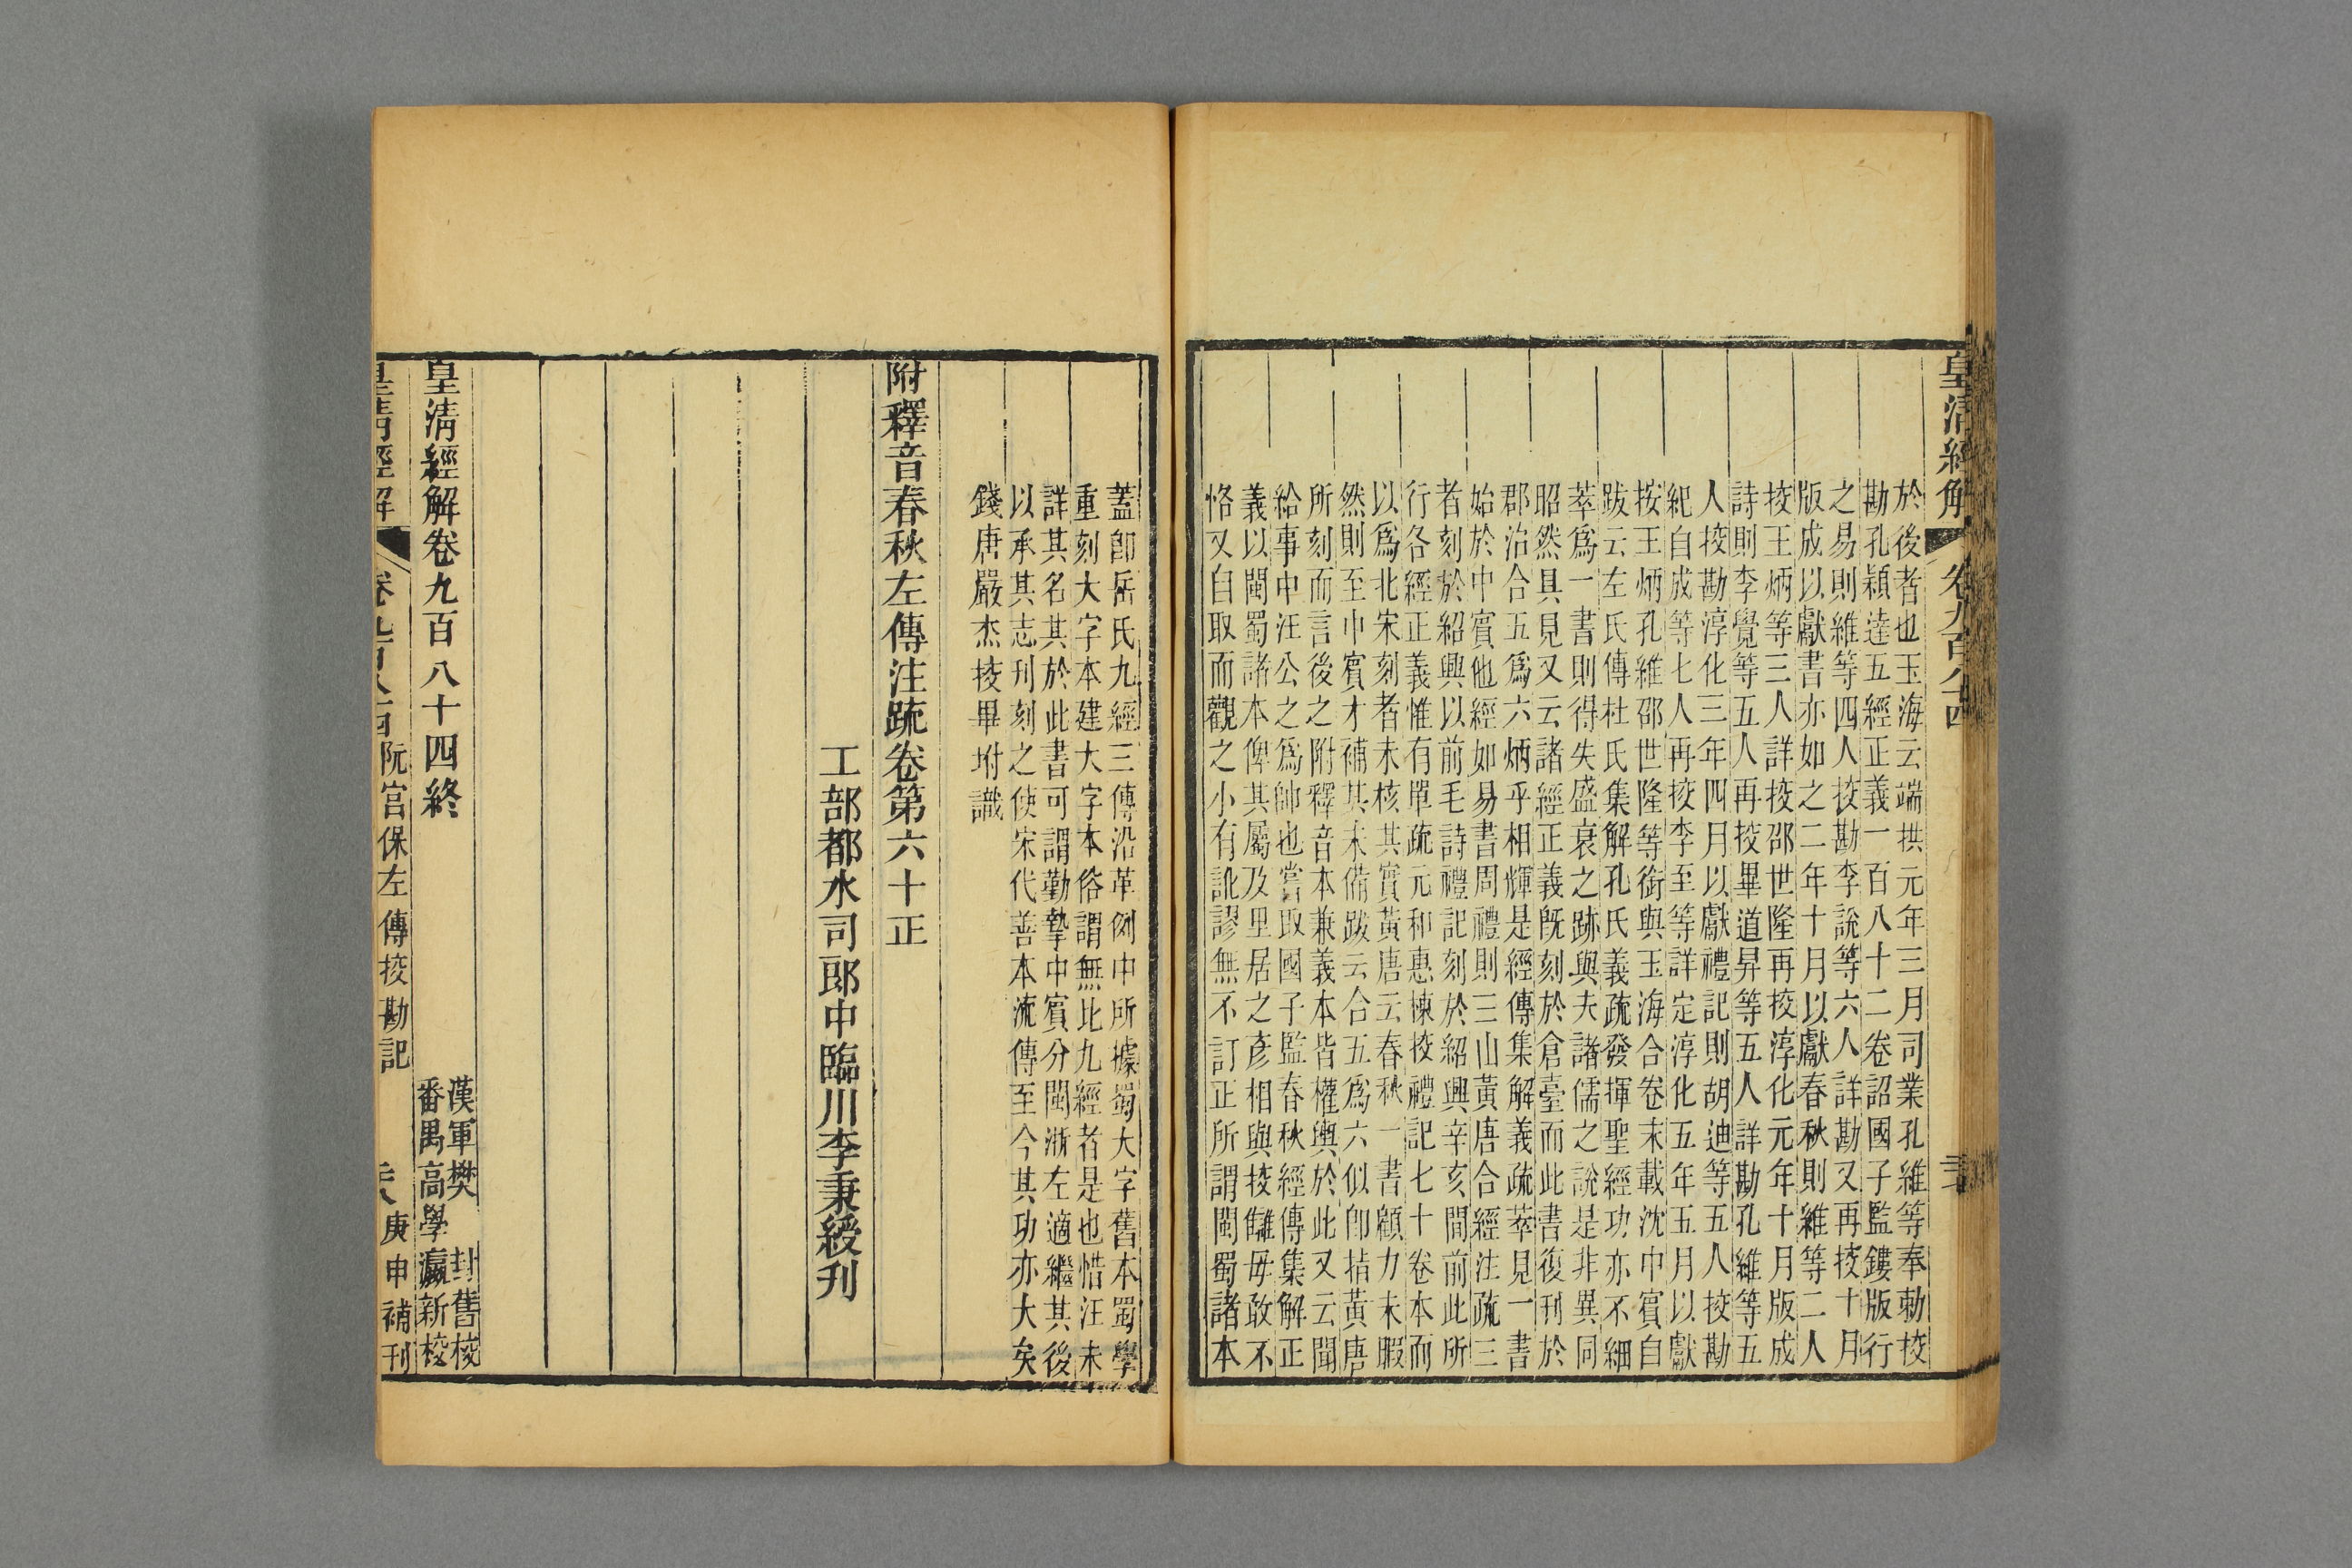 皇清經解 卷九百八十四
於後者也玉海云端拱元年三月司業孔維等奉勅挍
勘孔穎達五經正義一百八十二卷詔國子監鏤版行
之易則維等四人挍勘李說等六人詳勘又再挍十月
版成以獻書亦如之二年十月以獻春秋則維等二人
挍王炳等三人詳挍邵世隆再挍淳化元年十月版成
詩則李覺等五人再挍畢道昇等五人詳勘孔維等五
人挍勘淳化三年四月以獻禮記則胡迪等五人挍勘
紀自成等七人再挍李至等詳定淳化五年五月以獻
按王炳孔維邵世隆等銜與玉海合卷末載沈中賓自
跋云左氏傳杜氏集解孔氏義疏發揮聖經功亦不細
萃爲一書則得失盛衰之跡與夫諸儒之說是非異同
昭然具見又云諸經正義既刻於倉臺而此書復刊於
郡治合五爲六炳乎相輝是經傳集解義疏萃見一書
始於中賓他經如易書周禮則三山黃唐合經注疏三
者刻於紹興以前毛詩禮記刻於紹興辛亥間前此所
行各經正義惟有單疏元和惠棟挍禮記七十卷本而
以爲北宋刻者未核其實黃唐云春秋一書顧力未暇
然則至中賓才補其未備跋云合五爲六似卽拮黃唐
所刻而言後之附釋音本兼義本皆權輿於此又云聞
給事中汪公之爲帥也嘗取國子監春秋經傳集解正
義以閩蜀諸本俾其屬及里居之彥相與挍讎毋敢不
恪又自取而觀之小有訛謬無不訂正所謂閩蜀諸本
蓋卽岳氏九經三傳沿革例中所據蜀大字舊本蜀學
重刻大字本建大字本俗謂無比九經者是也惜汪未
詳其名其於此書可謂勤摯中賓分閫浙左適繼其後
以承其志刊刻之使宋代善本流傳至今其功亦大矣
錢唐嚴杰挍畢坿識
附釋音春秋左傳注疏卷第六十正
工部都水司郎中臨川李秉綬刊
皇清經解卷九百八十四終
漢軍樊 封舊挍
番禺高學瀛新挍
皇清經解 卷九百八十四 阮宮保左傳挍勘記 庚申補刊